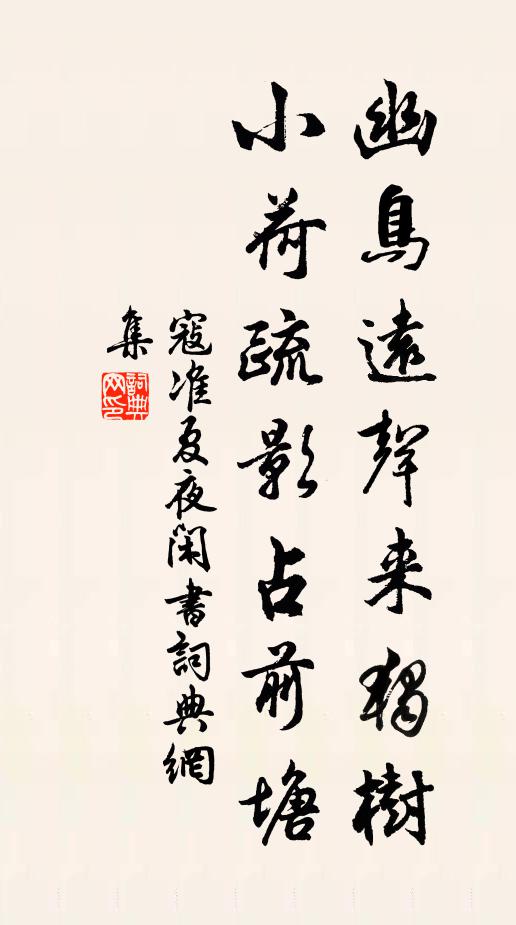 幽鳥遠聲来獨樹
小荷疏影占前塘
寇准夏夜闲書詞典網
集
詞典网印